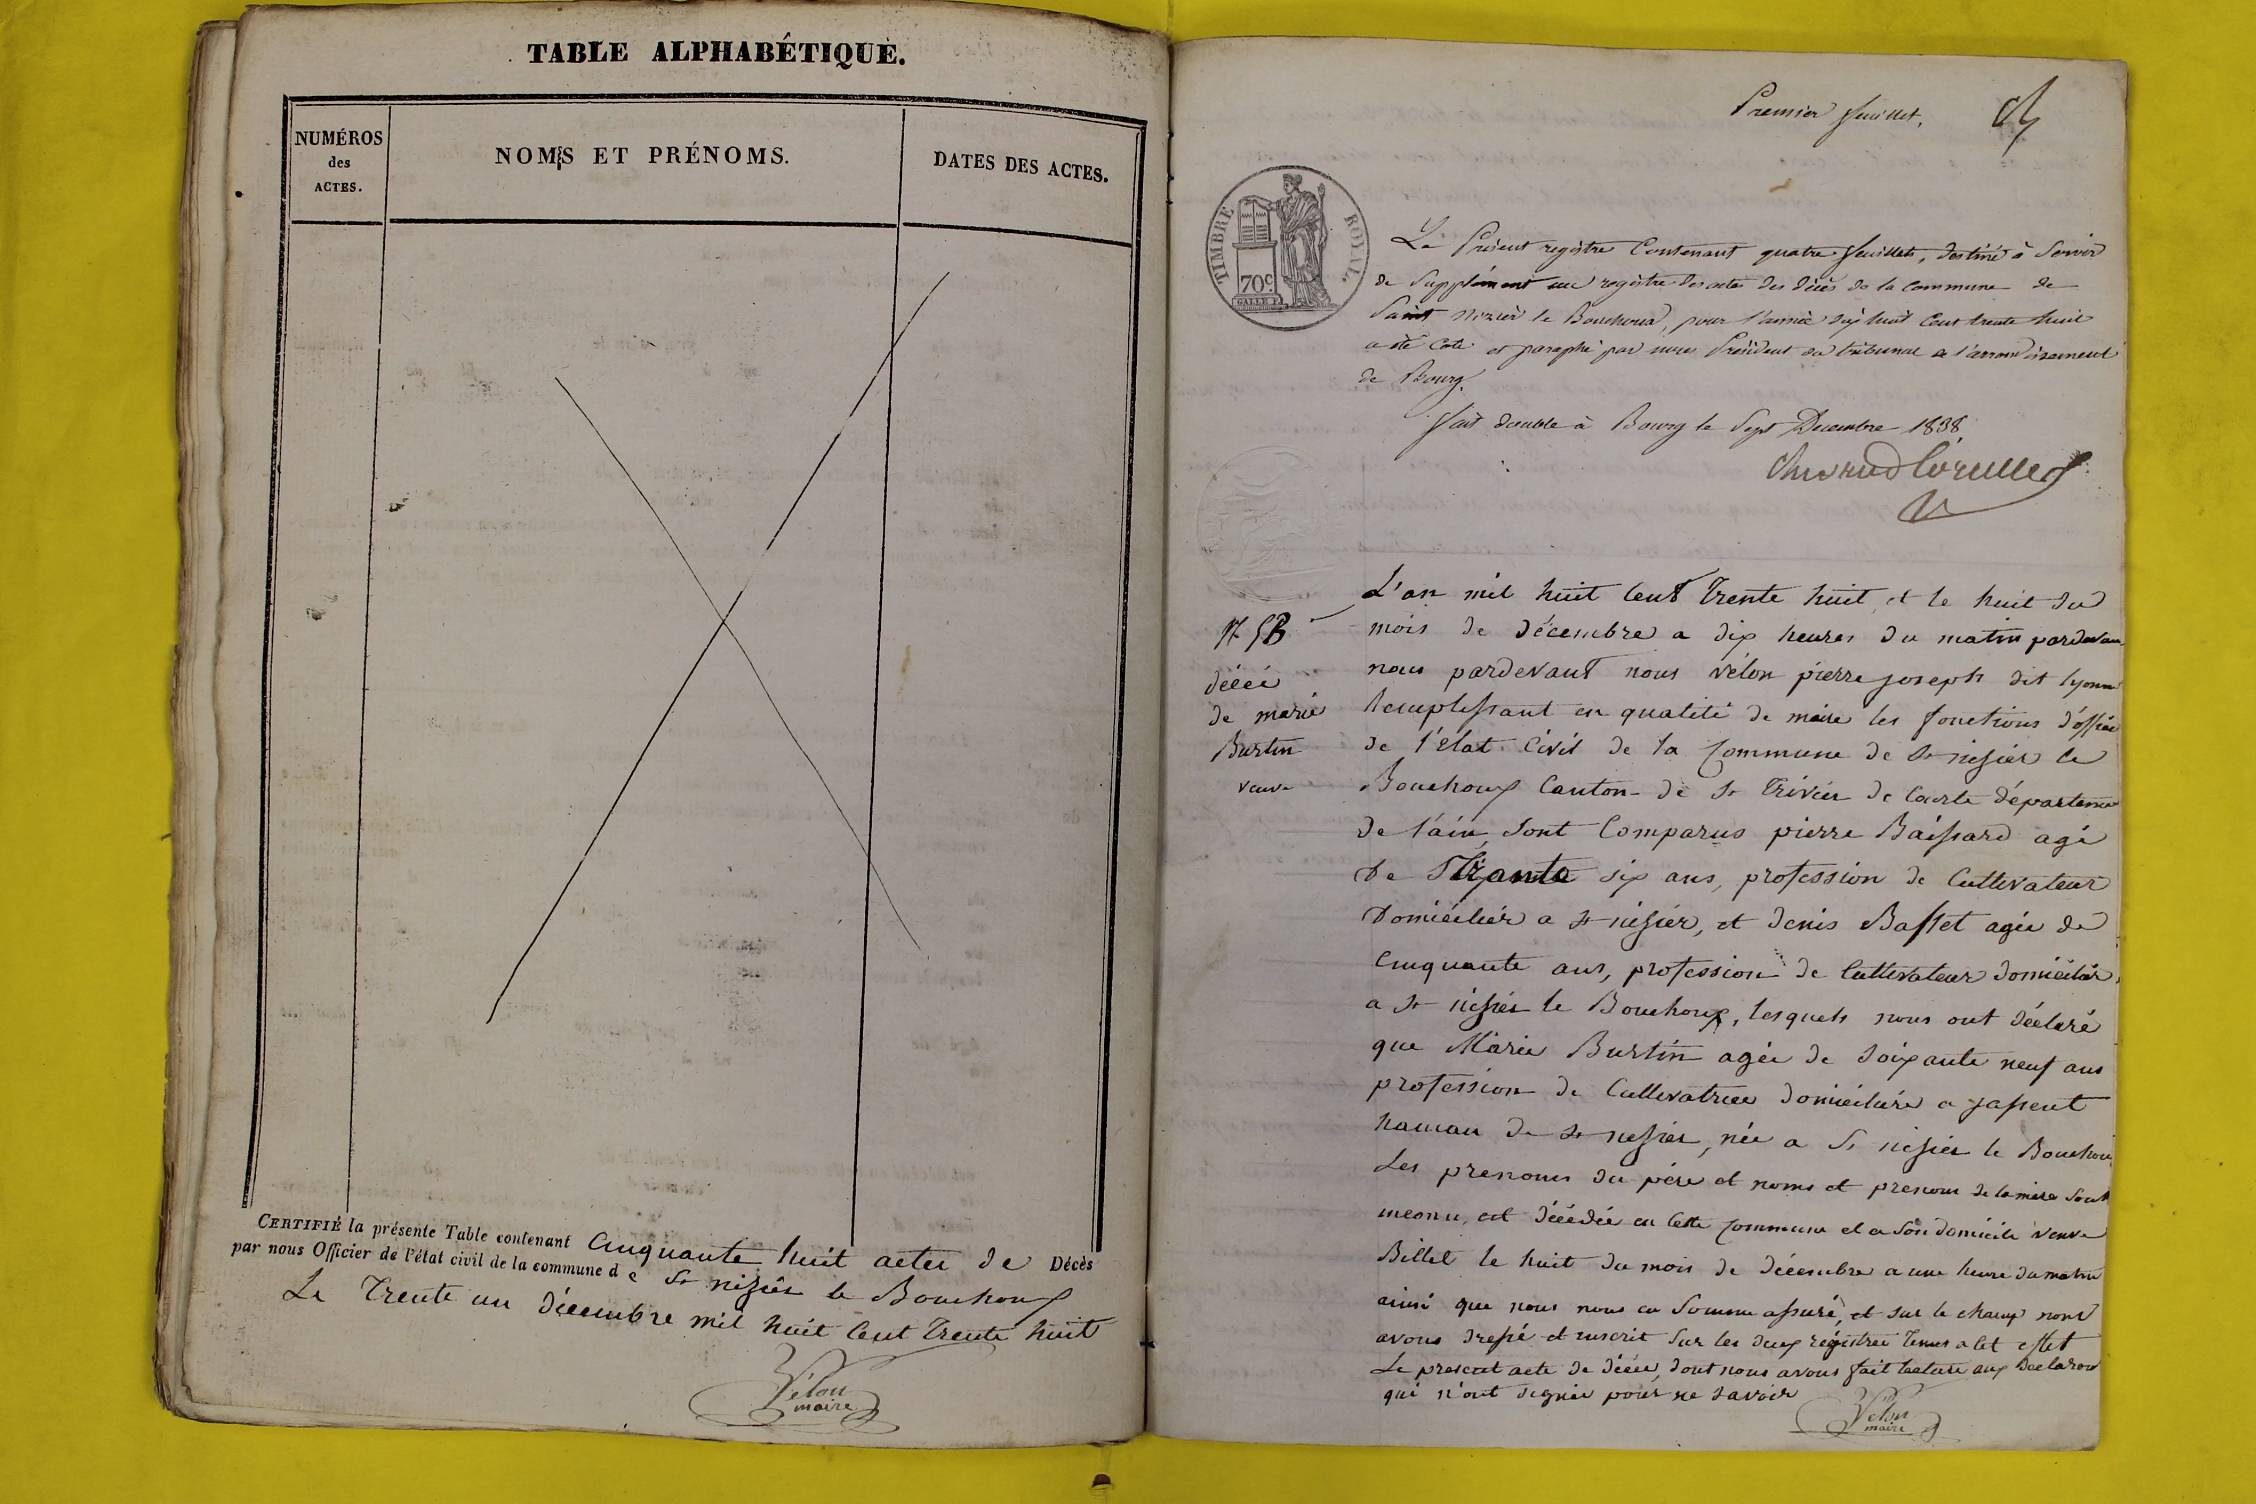 TABLE ALPHABÉTIQUE.
NUMÉROS
des
ACTES.
NOMS ET PRÉNOMS.
DATES DES ACTES.
CERTIFIÉ la présente Table contenant Cinquante huit actes de Décès
par nous Officier de l'état civil de la commune de St nizièr le Bouchoux
Le Trente un décembre mil huit Cent Trente huit
Vélon
maire
Premier feuillet.
TIMBRE ROYAL
70c.
Le Présent registre Contenant quatre feuillets, destiné à Servir
de Supplément au registre des actes des décès de la Commune de
Saint Nizier le Bouchoux, pour l'année dix huit Cent trente huit
a été Coté et paraphé par nous Président du tribunal de l'arrondissement
de Bourg.
fait double à Bourg le Sept Decembre 1838
N 58
décés
de marie
Burtin
veuve
L'an mil huit Cent Trente huit et le huit du
mois de décembre a dix heures du matin pardevan
nous pardevant nous vélon pierre joseph dit lyonn
Remplissant en qualité de maire les fonctions d'offici
de l'Etat Civil de la Commune de St nisier le
Bouchoux Canton de St Trivier de Courte départeme
de l'ain, Sont Comparus pierre Baissard agé
De Trante six ans, profession de Cultivateur
Domicilier a St nisier, et denis Basset agée de
Cinquante ans, profession de Cultivateur domicilier
a St nisier le Bouchoux, lesquels nous ont déclaré
que Marie Burtin agée de Soixante neuf ans
profession de Cultivatrice domicilière a jassent
hamau de St nisier, née a St nisier le Bouchoux
Les prenoms du pére et noms et prenom de la mère Sont
inconu, est décédée en Cette Commune et a Son domicile veuve
Billet le huit du mois de décembre a une heure du matin
ainsi que nous nous en Somme assuré, et sur le champ nous
avons dressé et inscrit Sur les deux régistree Tenus a Cet effet
Le present acte de décée, dont nous avons fait lecture aux Declaran
qui n'ont Signée pour ne Savoir
Vélon
maire